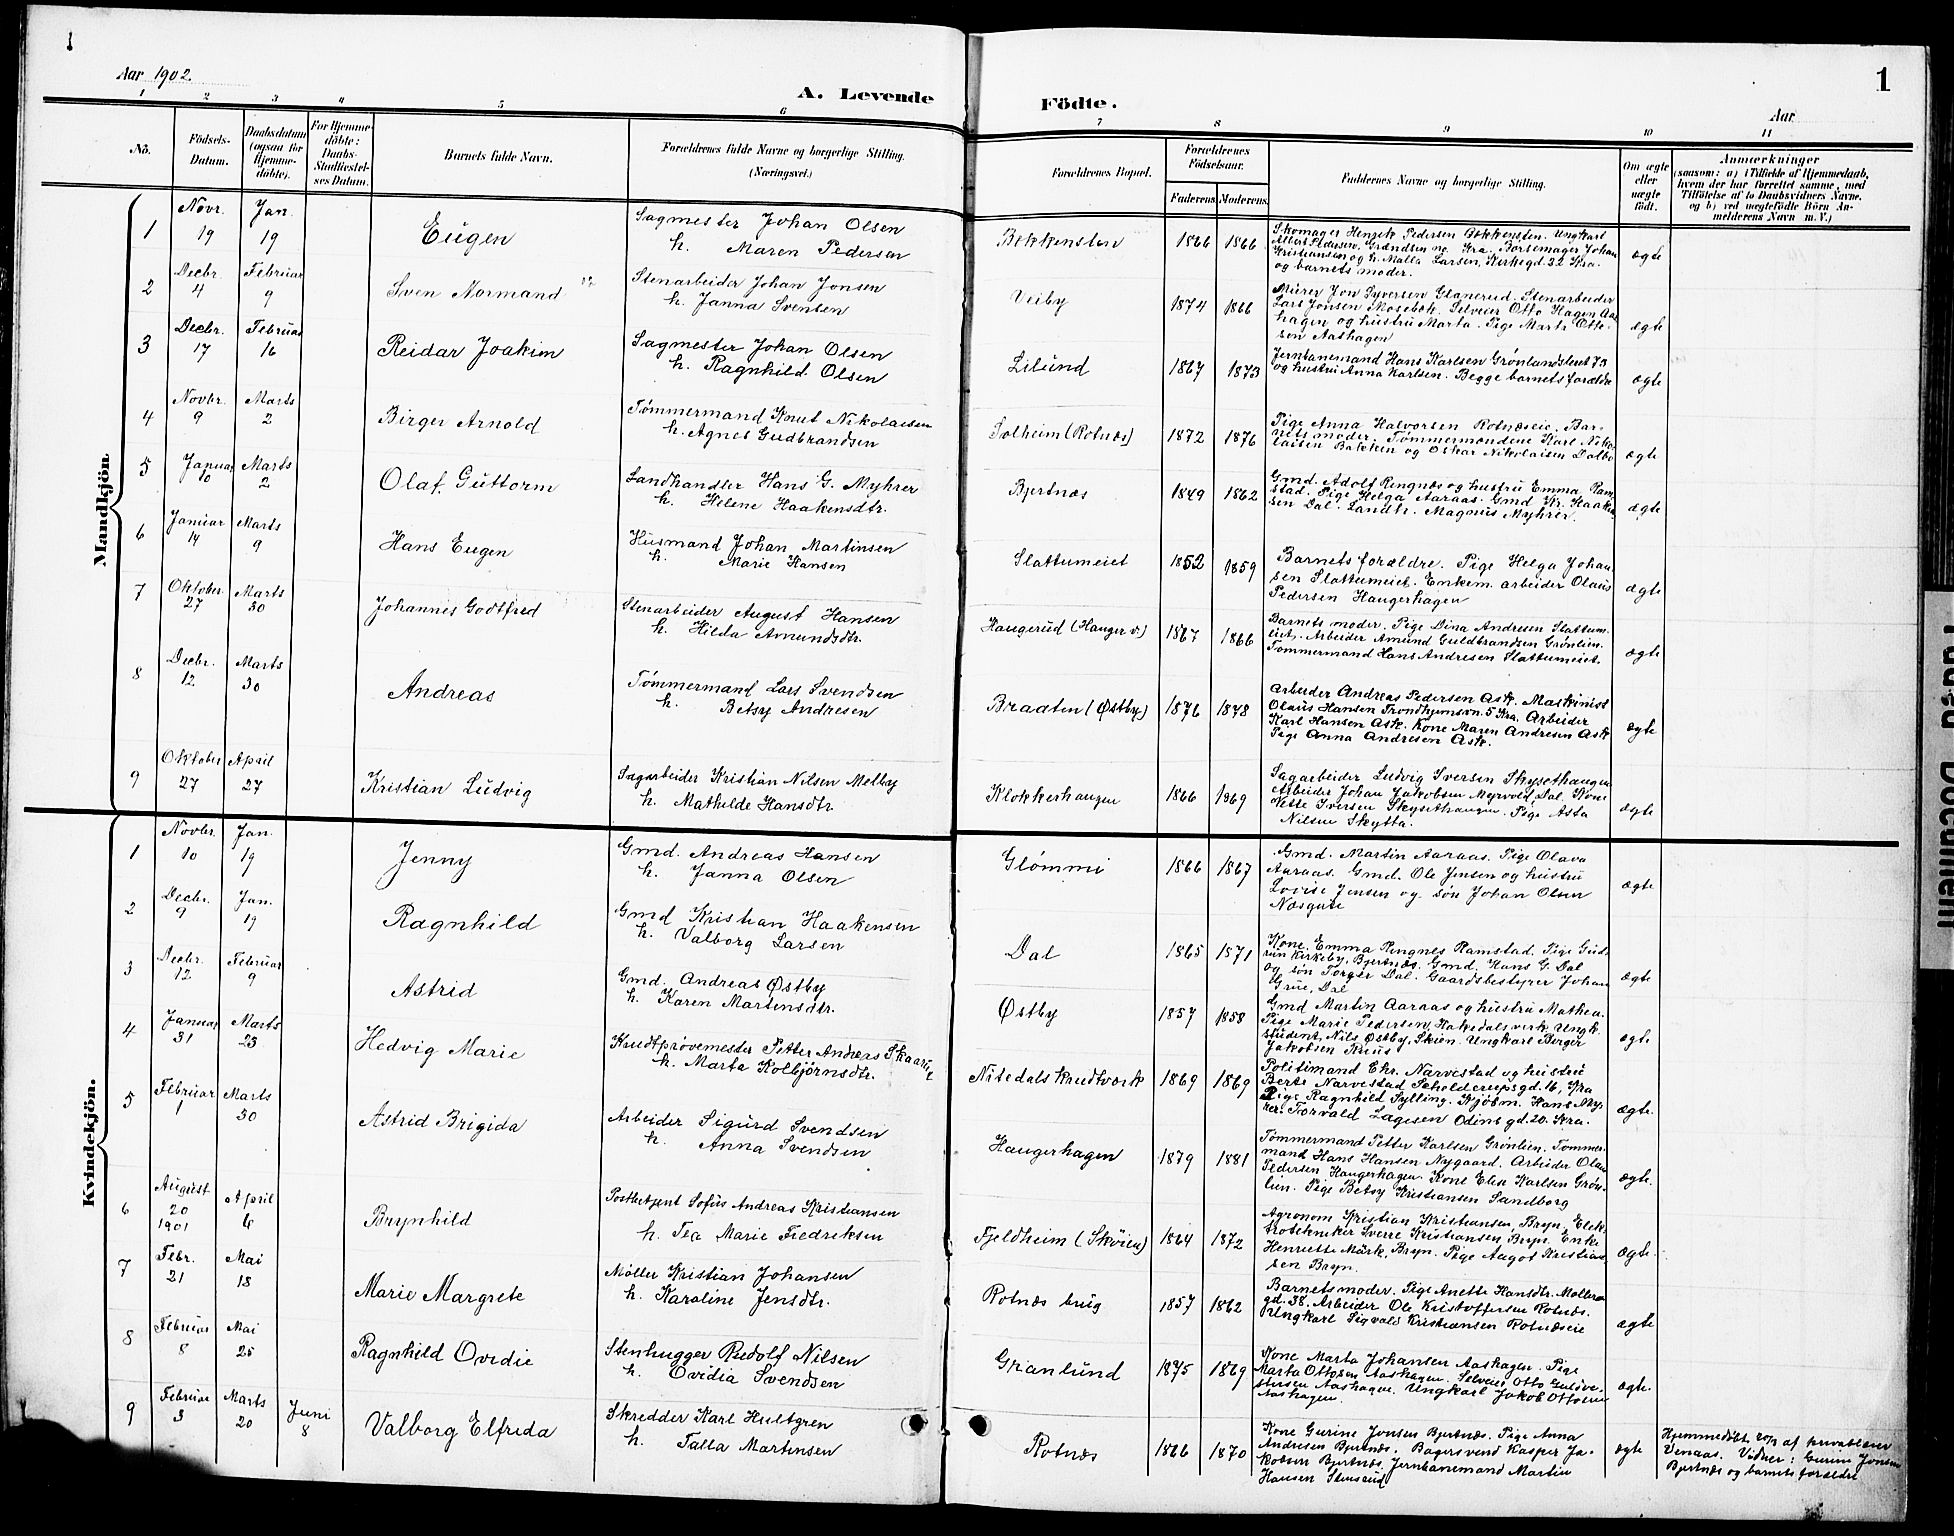 1
Aar 1902.
A. Levende Födte.
Aar
1
1 2 3 4 5 6 7 8 9 10 11
No.
Födsels-
Datum.
Daabsdatum
(ogsaa for
Hjemme-
döbte).
For Hjemme-
döbte:
Daabs-
Stadfæstel-
ses Datum.
Barnets fulde Navn.
Forældrenes fulde Navne og borgerlige Stilling.
(Næringsvei.)
Forældrenes Bopæl.
Forældrenes
Födselsaar.
Faderens. Moderens.
Faddernes Navne og borgerlige Stilling.
Om ægte
eller
uægte
födt.
Anmærkninger
(saasom: a) i Tilfælde af Hjemmedaab,
hvem der har forrettet samme, med
Tilföielse af to Daabsvidners Navne,
og b) ved uægtefödte Börn An-
melderens Navn m. V.)
Mandkjön
1 Novr. 19 Jan. 19 Eugen
Sagmester Johan Olsen
h. Maren Pedersen
Bekkensten 1866 1866
Skomager Henrik Pedersen Bekkensten. Ungkarl
Albert Pedersen, Grændsen no. Kra. Børsemager Johan
Kristiansen og h. Malla Larsen, Kirkegd. 32 Kra.
og barnets moder.
ægte
2 Decbr. 4 Februar 9 Sven Normand
Stenarbeider Johan Jonsen
h. Janna Svensen
Veiby 1874 1866
Murer Jon Syversen Glanerud. Stenarbeider
Lars Jonsen Mosebek. Selveier Otto Hagen Aas-
hagen og hustru Marta. Pige Marta Otto-
sen Aashagen
ægte
3 Decbr. 17 Februar 16 Reidar Joakim
Sagmester Johan Olsen
h. Ragnhild Olsen
Lilund 1867 1873
Jernbanemand Hans Karlsen Grønlandsleret 73
og hustru Anna Karlsen. Begge barnets forældre
ægte
4 Novbr. 9 Marts 2 Birger Arnold
Tømmermand Knut Nikolaisen
h. Agnes Gudbrandsen
Solheim (Rotnæs) 1872 1876
Pige Anna Halvorsen Rotnæseie, Bar-
nets moder. Tømmermændene Karl Niko-
laisen Bakken og Oskar Nikolaisen Dalbo
ægte
5 Januar 10 Marts 2 Olaf Guttorm
Landhandler Hans G. Myhrer
h. Helene Haakensdtr.
Bjertnæs 1849 1862
Gmd. Adolf Ringnæs og hustru Emma Ram-
stad. Pige Helga Aaraas. Gmd Kr. Haaken-
sen Dal. Landh. Magnus Myhrer.
ægte
6 Januar 14 Marts 9 Hans Eugen
Husmand Johan Martinsen
h. Marie Hansen
Slattumeiet 1852 1859
Barnets forældre. Pige Helga Johan-
sen Slattumeiet. Enkem. arbeider Olaus
Pedersen Haugerhagen
ægte
7 Oktober 27 Marts 30 Johannes Godtfred
Stenarbeider August Hansen
h. Hilda Amundsdtr.
Haugerud (Hauger v.) 1867 1866
Barnets moder. Pige Dina Andresen Slattum-
eiet. Arbeider Amund Guldbrandsen Grønlien.
Tømmermand Hans Andresen Slattumeiet.
ægte
8 Decbr. 12 Marts 30 Andreas
Tømmermand Lars Svendsen
h. Betsy Andresen
Braaten (Østby) 1876 1878
Arbeider Andreas Pedersen Ask. Maskinist
Olaus Hansen Trondhjemsvn. 5 Kra. Arbeider
Karl Hansen Ask. Kone Maren Andresen Ask
Pige Anna Andresen Ask.
ægte
9 Oktober 27 April 27 Kristian Ludvig
Sagarbeider Kristian Nilsen Melby
h. Mathilde Hansdtr.
Klokkerhaugen 1866 1869
Sagarbeider Ludvig Iversen Skysethaugen
Arbeider Johan Jakobsen Myrvold, Dal. Kone
Nette Iversen Skysethaugen. Pige Asta
Nilsen Skytta.
ægte
Kvindekjön.
1 Novbr. 10 Jan. 19 Jenny
Gmd. Andreas Hansen
h. Janna Olsen
Glømmi 1866 1867
Gmd. Martin Aaraas. Pige Olava
Aaraas. Gmd. Ole Jensen og hustru
Lovise Jensen og søn Johan Olsen
Næsgute
ægte
2 Decbr. 9 Jan. 19 Ragnhild
Gmd Kristian Haakensen
h. Valborg Larsen
Dal 1865 1871
Kone Emma Ringnes Ramstad. Pige Gud-
run Kirkeby, Bjertnæs. Gmd. Hans G. Dal
og søn Torger Dal. Gaardsbestyrer Johan
Grue, Dal
ægte
3 Decbr. 12 Februar 9 Astrid
Gmd. Andreas Østby
h. Karen Martensdtr.
Østby 1857 1858
Gmd Martin Aaraas og hustru Mathea.
Pige Marie Pedersen, Hakedalsverk. Ungk.
student, Nils Østby, Skien. Ungkarl Berger
Jakobsen Kruus
ægte
4 Januar 31 Marts 23 Hedvig Marie
Krudtprøvemester Petter Andreas Skaaring
h. Marta Kolbjørnsdtr.
Nitedals krudtværk 1869 1869
Politimand Chr. Narvestad og hustru
Berte Narvestad Scholderupsgd. 16, Kra
Pige Ragnhild Sylling. Kjøbm. Hans Myh-
rer. Torvald Lagesen Odinsgd. 20. Kra.
ægte.
5 Februar 1 Marts 30 Astrid Brigida
Arbeider Sigurd Svendsen
h. Anna Svendsen
Haugerhagen 1879 1881
Tømmermand Petter Karlsen Grønlien. Tømmer-
mand Hans Hansen Nygaard. Arbeider Olaus
Pedersen Haugerhagen. Kone Elise Karlsen Grøn-
lien. Pige Betsy Kristiansen Sandborg
ægte.
6 August 20 1901 April 6 Brynhild
Postbetjent Sofus Andreas Kristiansen
h. Tea Marie Fredriksen
Fjeldheim (Skøien) 1864 1872
Agronom Kristian Kristiansen, Bryn, Elek-
trotekniker Sverre Kristiansen, Bryn. Enke
Henriette Mørk, Bryn. Pige Aagot Kristian-
sen Bryn.
ægte.
7 Febr. 21 Mai 18 Marie Margrete
Møller Kristian Johansen
h. Karoline Jensdtr.
Rotnæs brug 1857 1862
Barnets moder. Pige Anette Hansdtr. Møller-
gd. 38. Arbeider Ole Kristoffersen Rotnæs.
Ungkarl Sigvald Kristiansen Rotnæseie
ægte
8 Februar 8 Mai 25 Ragnhild Ovidie
Stenhugger Rudolf Nilsen
h. Ovidia Svendsen
Granlund 1875 1869
Kone Marta Johansen Aashagen. Pige
Marta Ottosen Aashagen. Selveier Otto
Aashagen. Ungkarl Jakob Ottosen
Aashagen.
ægte.
9 Februar 3 Marts 20 Juni 8 Valborg Elfrida
Skredder Karl Hultgren
h. Talla Martinsen
Rotnæs 1866 1870
Kone Gurine Jonsen Bjertnæs. Pige Anna
Andresen Bjertnæs. Bagersvend Kasper Ja-
kobsen Bjertnæs. Jernbanemand Martin
Hansen Stensrud
ægte
Hjemmedøbt 20/3 af privatlærer
Venaas. Vidner: Gurine Jonsen
Bjertnæs og barnets forældre